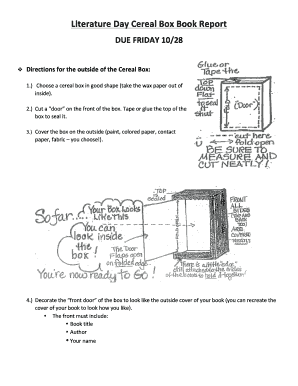 Literature Day Cereal Box Book Report
DUE FRIDAY 10/28
❖ Directions for the outside of the Cereal Box:
1.) Choose a cereal box in good shape (take the wax paper out of
inside).
2.) Cut a "door" on the front of the box. Tape or glue the top of the
box to seal it.
3.) Cover the box on the outside (paint, colored paper, contact
paper, fabric – you choose!).
Glue or
Tape the
Top
down
Flat
to seal
it
shut
("Door")
cut here
fold open
BE SURE TO
MEASURE AND
CUT NEATLY!
TOP is
sealed
So far...
Your Box Looks
Like This
You can
look inside
the
box!
The Door
Flaps open
on folded edge.
You're now ready to GO!
FRONT
ALL
SIDES
TOP AND
BACK
YOU
ARE
COVERED
There is a little edge
left
4.) Decorate the "front door" of the box to look like the outside cover of your book (you can recreate the
cover of your book to look how you like).
▪ The front must include:
• Book title
• Author
• Your name